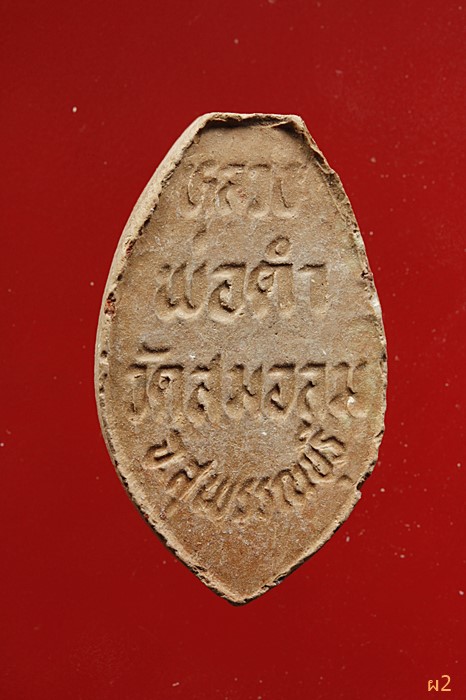 หลวง
พ่อคำ
วัดสมอลม
จ.สุพรรณบุรี
ผ2